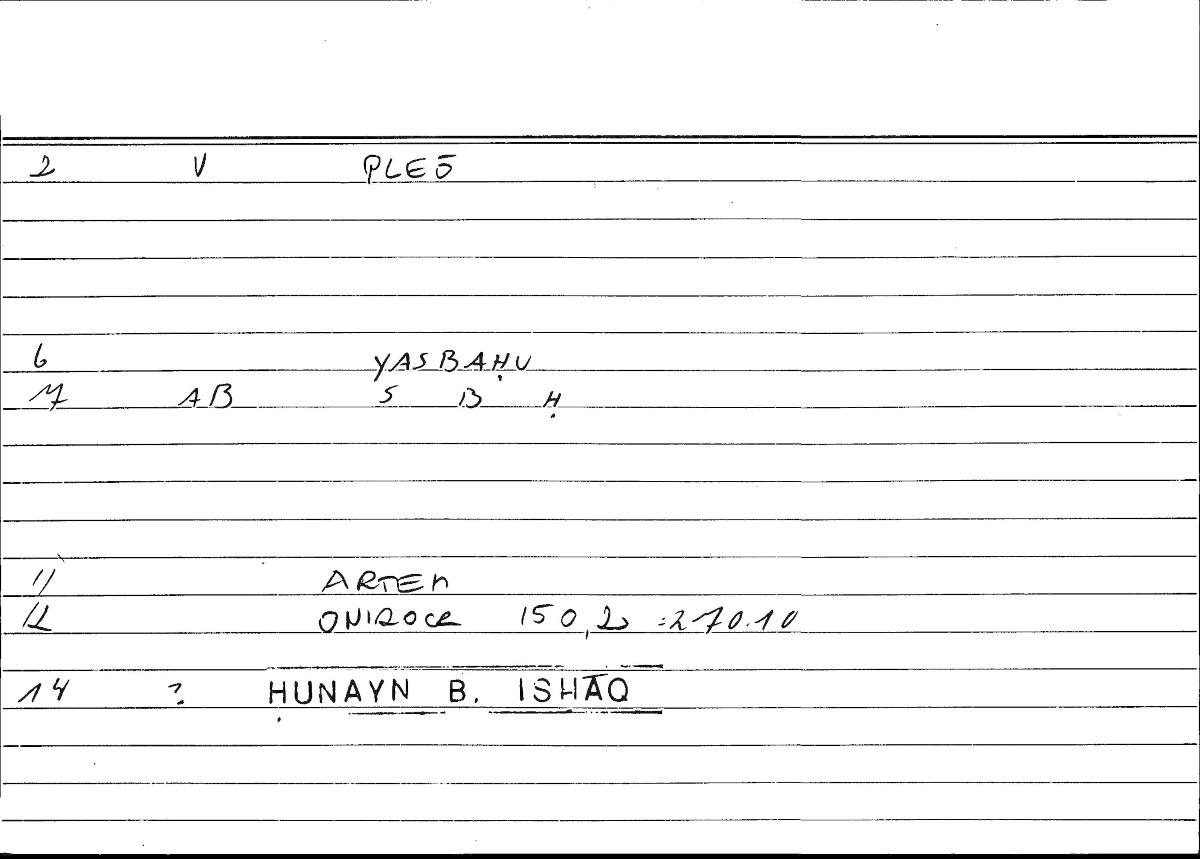 2 V PLEŌ
6 YASBAḤU
7 AB S B Ḥ
11 ARTEM
12 ONIROCR 150,20 =270.10
14 ? ḤUNAYN B. ISHĀQ